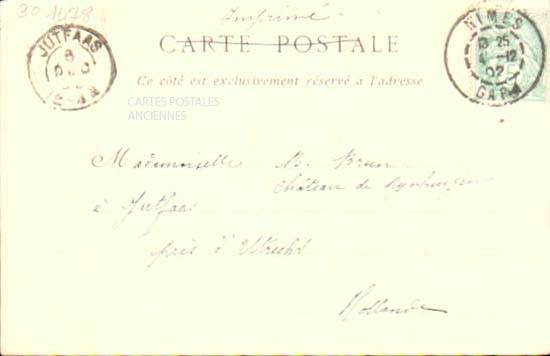 30 1478
Imprimé.
CARTE POSTALE
Ce côté est exclusivement réservé à l'adresse
JUTFAAS
8
DEC
NIMES
13 25
4 -12
02
GARD
CARTES POSTALES
ANCIENNES
Mademoiselle B.
Château de
à Jutfaas
près d'Utrecht
Hollande